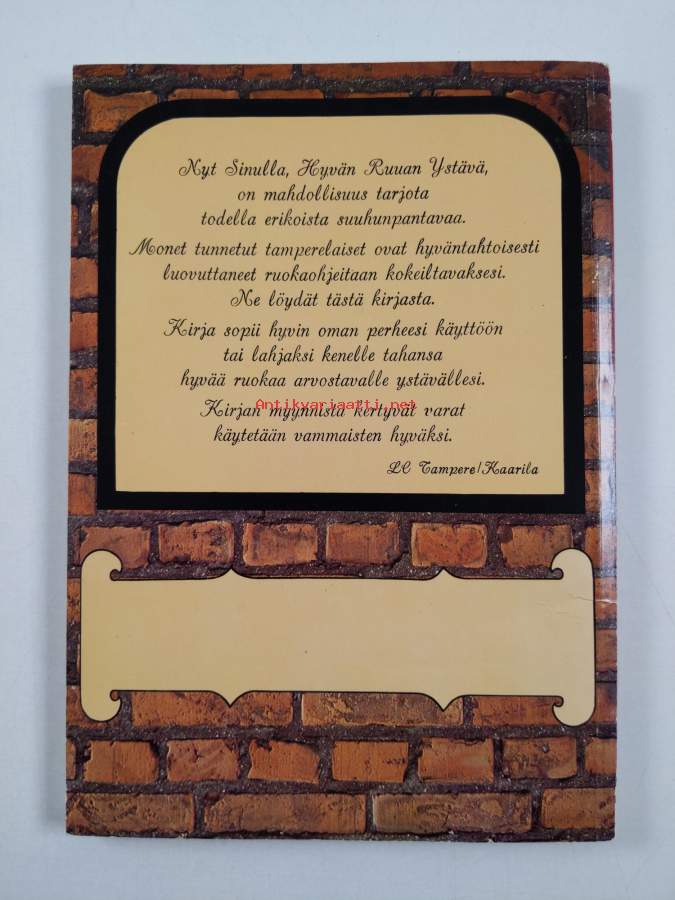 Nyt Sinulla, Hyvän Ruuan Ystävä,
on mahdollisuus tarjota
todella erikoista suuhunpantavaa.
Monet tunnetut tamperelaiset ovat hyväntahtoisesti
luovuttaneet ruokaohjeitaan kokeiltavaksesi.
Ne löydät tästä kirjasta.
Kirja sopii hyvin oman perheesi käyttöön
tai lahjaksi kenelle tahansa
hyvää ruokaa arvostavalle ystävällesi.
Antikvariaatti.net
Kirjan myynnistä kertyvät varat
käytetään vammaisten hyväksi.
LC Tampere/Kaarila